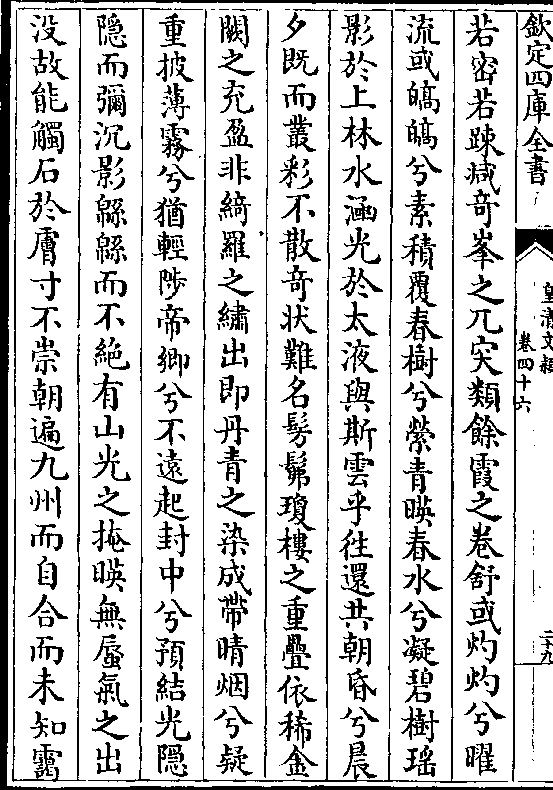 欽定四庫全書
皇清文穎
卷四十六
若密若踈焂竒峯之兀突類餘霞之卷舒或灼灼兮曜
流或皜皜兮素積覆春樹兮縈青暎春水兮凝碧樹瑶
影於上林水涵光於太液與斯雲乎徃還共朝昏兮晨
夕既而叢彩不散竒状難名髣髴瓊樓之重疊依稀金
闕之充盈非綺羅之繡出即丹青之染成帶晴烟兮疑
重披薄霧兮猶輕陟帝鄉兮不遠起封中兮預結光隠
隠而彌沉影緜緜而不絶有山光之掩暎無蜃氣之出
没故能觸石於膚寸不崇朝遍九州而自合而未知靄